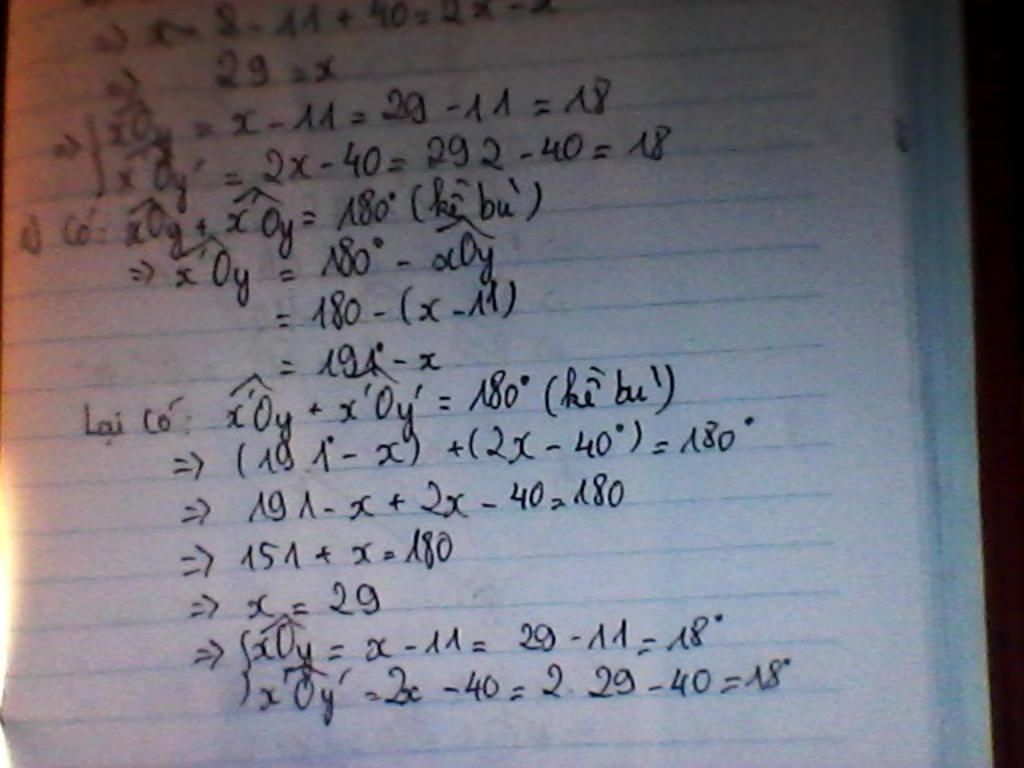 => x - 2 - 11 + 40 = 2x - x
=> 29 = x
=> { xOy = x - 11 = 29 - 11 = 18
x'Oy' = 2x - 40 = 29 2 - 40 = 18
Có: xOy + x'Oy = 180° (kề bù)
=> x'Oy = 180° - xOy
= 180 - (x - 11)
= 191° - x
Lại có: x'Oy + x'Oy' = 180° (kề bù)
=> (191° - x) + (2x - 40°) = 180°
=> 191 - x + 2x - 40 = 180
=> 151 + x = 180
=> x = 29
=> { xOy = x - 11 = 29 - 11 = 18°
x'Oy' = 2x - 40 = 2. 29 - 40 = 18°